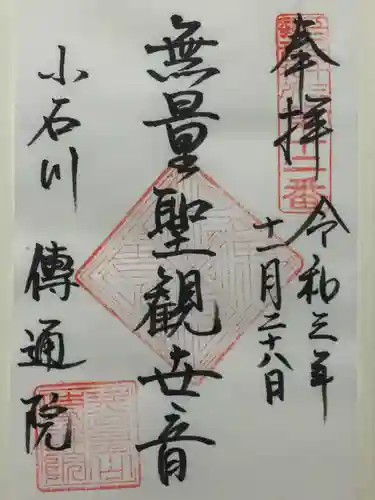 奉拝
令和元年
十一月二十八日
無量聖観世音
小石川
傳通院